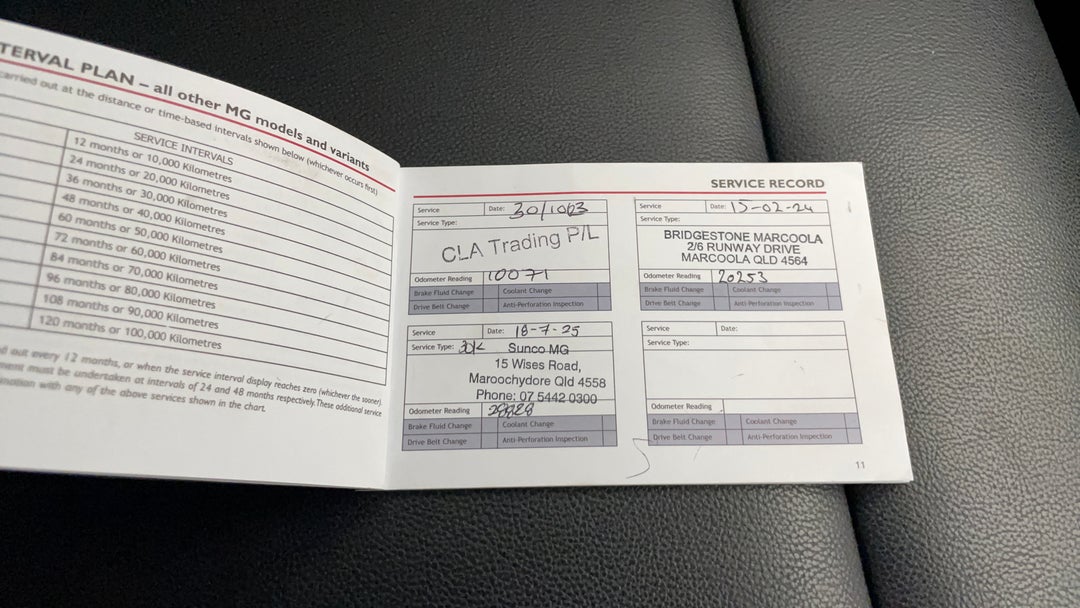 TERVAL PLAN – all other MG models and variants
carried out at the distance or time-based intervals shown below (whichever occurs first)
SERVICE INTERVALS
12 months or 10,000 Kilometres
24 months or 20,000 Kilometres
36 months or 30,000 Kilometres
48 months or 40,000 Kilometres
60 months or 50,000 Kilometres
72 months or 60,000 Kilometres
84 months or 70,000 Kilometres
96 months or 80,000 Kilometres
108 months or 90,000 Kilometres
120 months or 100,000 Kilometres
out every 12 months, or when the service interval display reaches zero (whichever the sooner)
ment must be undertaken at intervals of 24 and 48 months respectively. These additional service
nation with any of the above services shown in the chart.
SERVICE RECORD
Service Date:
Service Type:
CLA Trading P/L
Odometer Reading 10071
Brake Fluid Change Coolant Change
Drive Belt Change Anti-Perforation Inspection
Service Date: 15-02-24
Service Type:
BRIDGESTONE MARCOOLA
2/6 RUNWAY DRIVE
MARCOOLA QLD 4564
Odometer Reading 20253
Brake Fluid Change Coolant Change
Drive Belt Change Anti-Perforation Inspection
Service Date: 18-7-25
Service Type: 30K Sunco MG
15 Wises Road,
Maroochydore Qld 4558
Phone: 07 5442 0300
Odometer Reading 28828
Brake Fluid Change Coolant Change
Drive Belt Change Anti-Perforation Inspection
Service Date:
Service Type:
Odometer Reading
Brake Fluid Change Coolant Change
Drive Belt Change Anti-Perforation Inspection
11